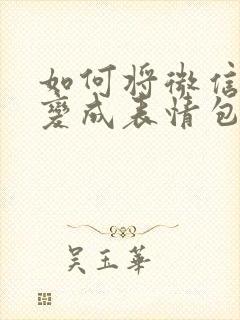 如何将微信
变成表情包
吴玉华